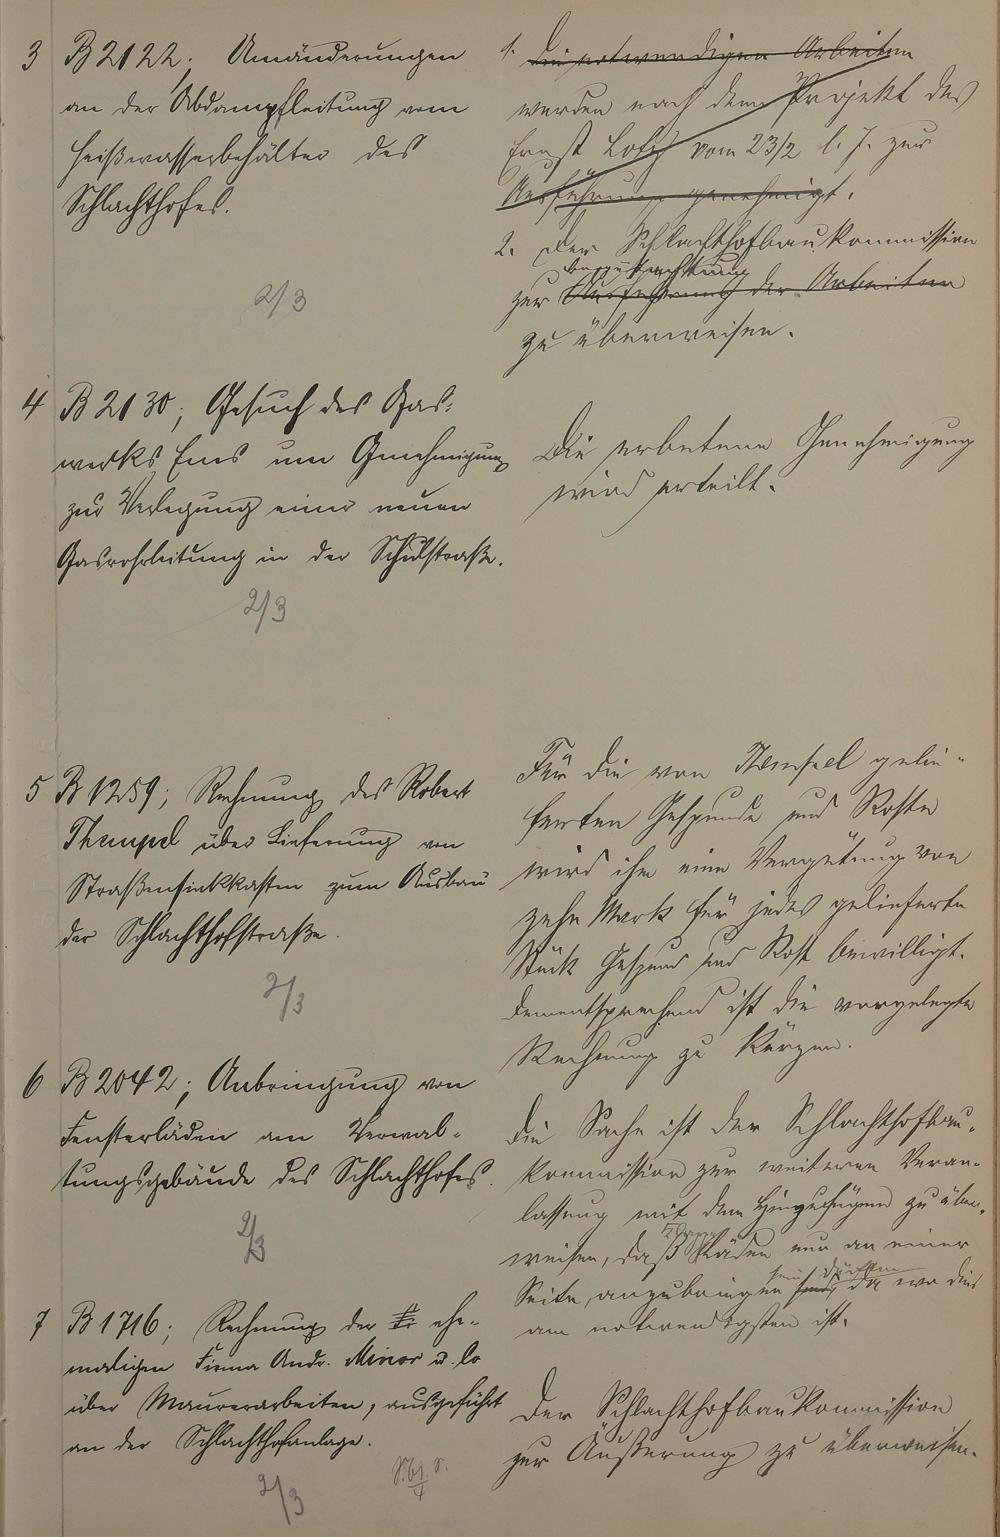 3 B 2122; Umänderungen
an der Abdampfleitung vom
Heißwasserbehälter des
Schlachthofes.
2/3
1. Die notwendigen Arbeiten
werden nach dem Projekt des
Ernst Lotz vom 23/2 l. J. zur
Ausführung genehmigt.
2. Der Schlachthofbaukommission
Begutachtung
zur Ausführung der Arbeiten
zu überweisen.
4 B 2130; Gesuch des Gas-
werks Ems um Genehmigung
zur Verlegung einer neuen
Gasrohrleitung in der Schulstraße.
2/3
Die erbetene Genehmigung
wird erteilt.
5 B 1259; Rechnung des Robert
Thempel über Lieferung von
Straßensinkkasten zum Ausbau
der Schlachthofstraße.
2/3
Für die von gelie-
ferten Gespunde und Roste
wird ihm eine Vergütung von
zehn Mark für jedes gelieferte
Stück Gespund und Rost bewilligt.
Dementsprechend ist die vorgelegte
Rechnung zu kürzen.
6 B 2042; Anbringung von
Fensterläden am Verwal-
tungsgebäude des Schlachthofes.
2/3
Die Sache ist der Schlachthofbau-
kommission zur weiteren Veran-
lassung mit dem Hinzufügen zu über-
weisen, daß Läden nur an einer
sein dürften
Seite, anzubringen sind, da wo dies
am notwendigsten ist.
7 B 1716; Rechnung der ehe-
maligen Firma Andr. Minor u. Co
über Maurerarbeiten, ausgeführt
an der Schlachthofanlage.
2/3
Der Schlachthofbaukommission
zur Äußerung zu überweisen.